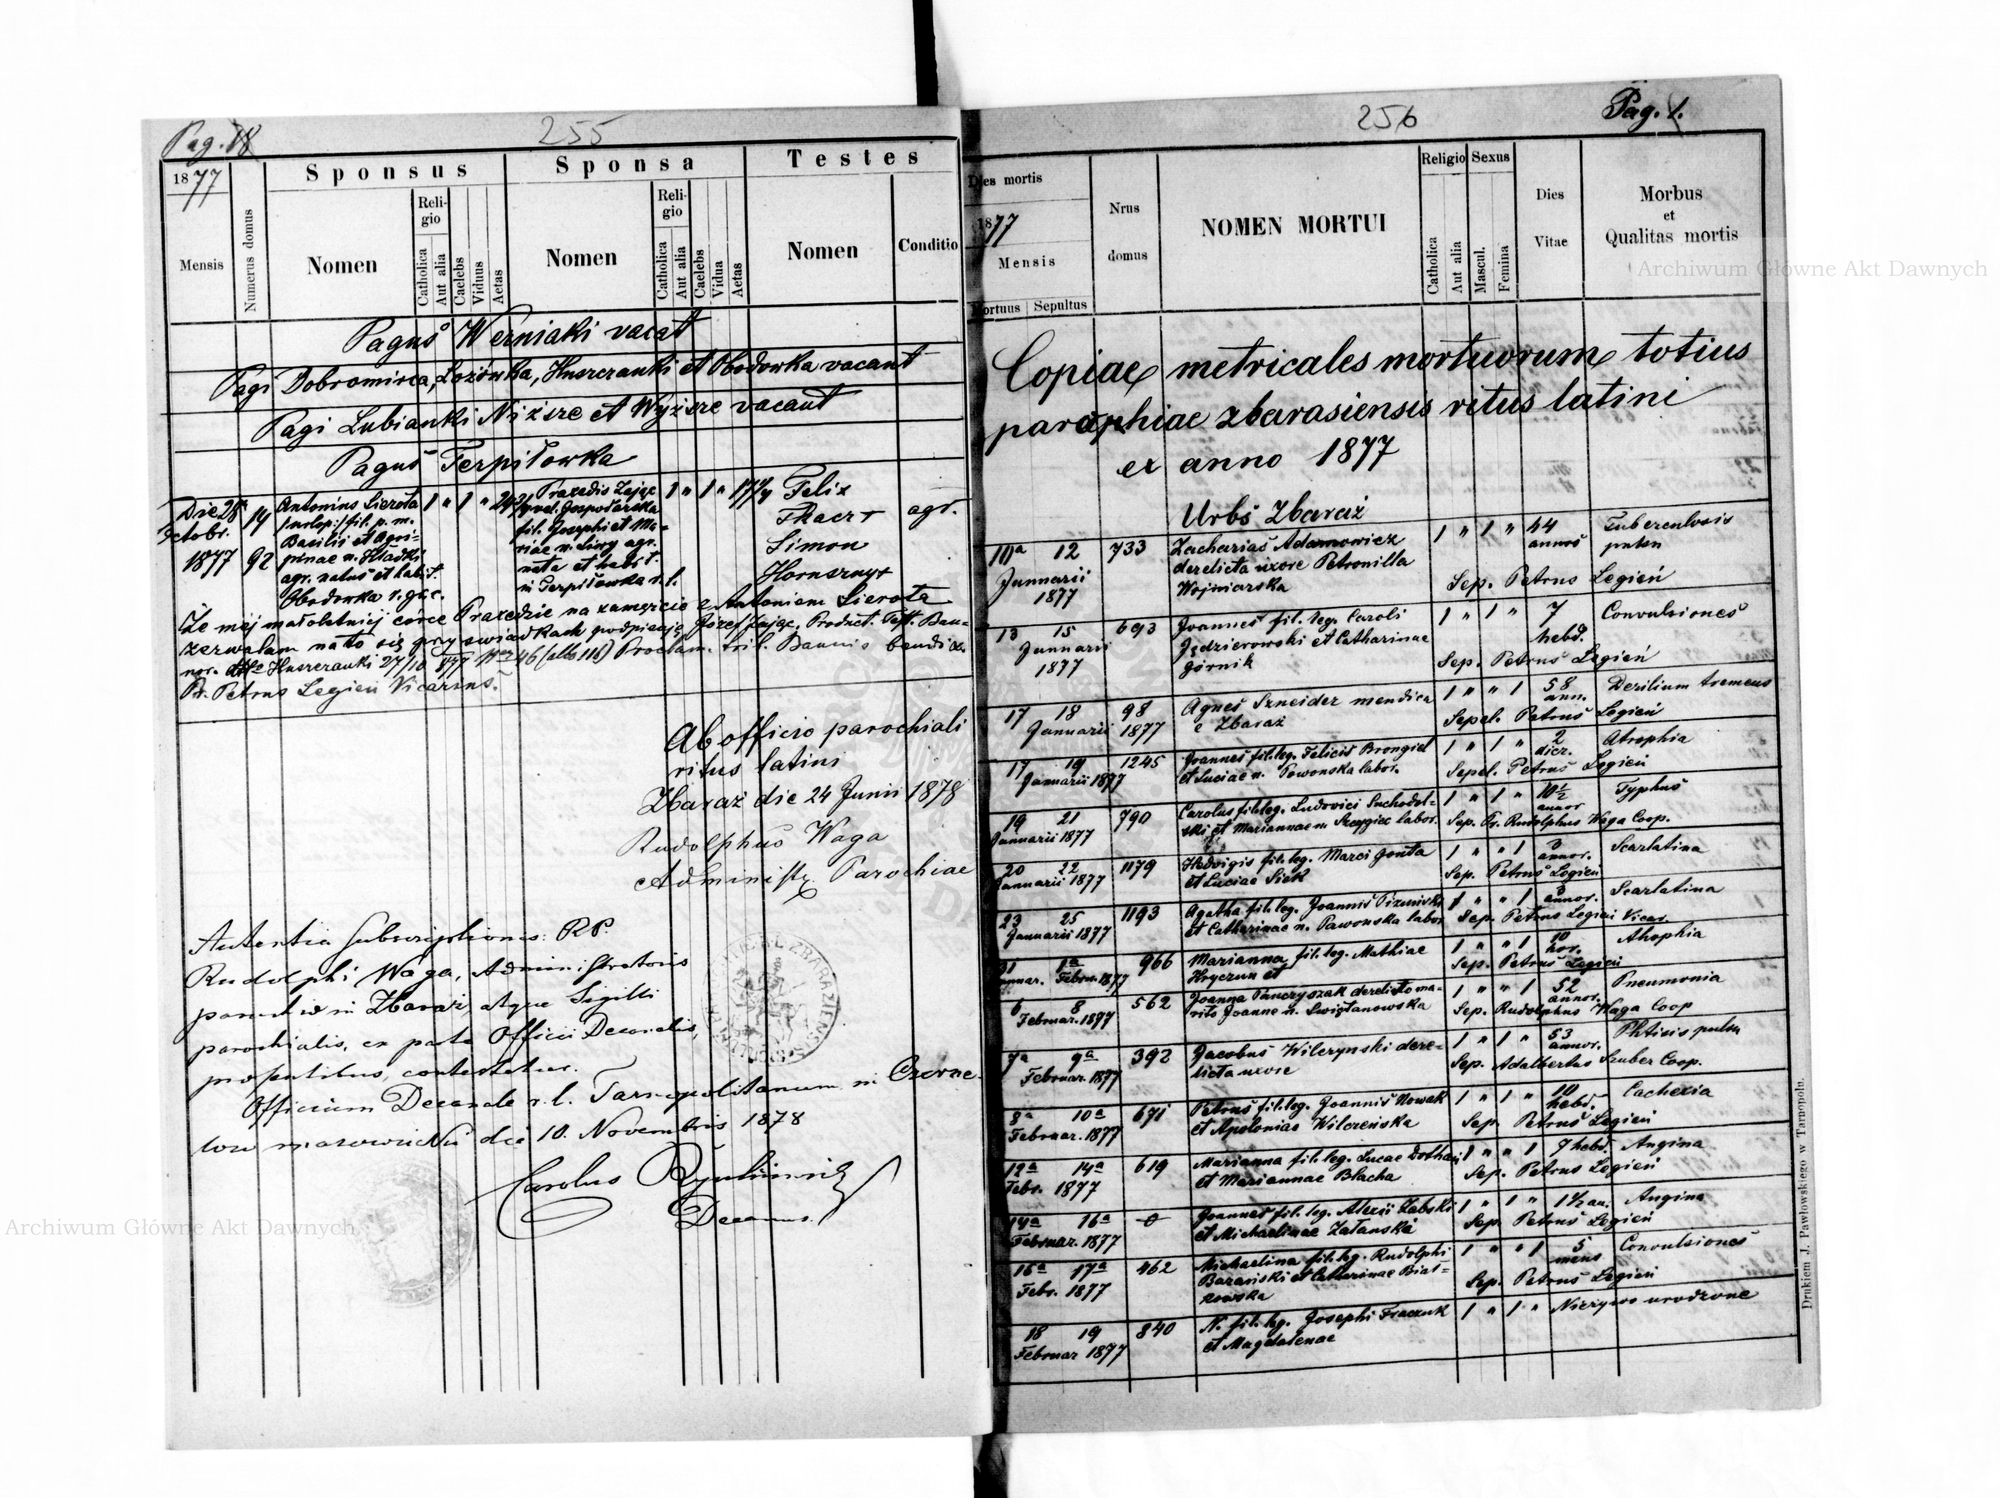 Pag. 18
255
1877
Mensis
Numerus domus
Sponsus
Nomen
Religio
Catholica
Aut alia
Caelebs
Viduus
Aetas
Sponsa
Nomen
Religio
Catholica
Aut alia
Caelebs
Vidua
Aetas
Testes
Nomen
Conditio
Pagus Werniaki vacat
Pagi Dobromirca, Łozówka, Huszczanki et Obodowka vacant
Pagi Lubianki Niższe et Wyższe vacant
Pagus Terpiłowka
Die 28
Octobr.
1877
14
92
Antonius Sierota
fil. p. m.
Basilii et Agri-
pinae n. Hładki
agr. natus et habit.
Obodowka r. gr. c.
1 " 1 " 24
Praxedis Zając
fil. Josephi et Ma-
riae n. agr.
nata et habit.
in Terpiłowka r. l.
1 " 1 " 17
Felix
Tkacz
Simon
Hornszny
agr.
Że mej małoletniej córce Praxedzie na zamęście z Antonim Sierota
zezwalam na to się przy świadkach podpisuję Józef Zając, Product. Test. Ban-
nor. Huszczanki 27/10 877 46 Proclam. trib. Bannis bened.
Pr. Petrus Legień Vicarius.
Ab officio parochiali
ritus latini
Zbaraż die 24 Junii 1878
Rudolphus Waga
Administr. Parochiae
Autentia Subscriptionis RP.
Rudolphi Waga, Administratoris
in Zbaraż, atque Sigilli
parochialis, ex parte Officii Decanalis,
praesentibus, contestatur.
Officium Decanale r. l. Tarnopolitanum in Czerne-
low mazowiecki die 10. Novembris 1878
Carolus
Decanus.
256
Pag. 1.
Dies mortis
1877
Mensis
Mortuus
Sepultus
Nrus
domus
NOMEN MORTUI
Religio
Catholica
Aut alia
Sexus
Mascul.
Femina
Dies
Vitae
Morbus
et
Qualitas mortis
Archiwum Główne Akt Dawnych
Copiae metricales mortuorum totius
parophiae zbarasiensis ritus latini
ex anno 1877
Urbs Zbaraż
12
Januarii
1877
733
Zacharias Adamowicz
derelicta uxore Petronilla
Wojniarska
1 " 1 "
44
annos
Tuberculosis
pulm
Sep. Petrus Legień
13 15
Januarii
1877
693
Joannes fil. leg. Caroli
Jędzierowski et Catharinae
Górnik
1 " 1 "
7
hebd.
Convulsiones
Sep. Petrus Legień
17 18
Januarii 1877
98
Agnes Szneider mendica
e Zbaraż
1 " " 1
58
ann.
Delirium tremens
Sepel. Petrus Legień
17 19
Januarii 1877
1245
Joannes fil. leg. Felicis Brongiel
et Luciae n. Powonska labor.
1 " 1 "
2
dier.
Atrophia
Sepel. Petrus Legień
19 21
Januarii 1877
790
Carolus fil. leg. Ludovici Suchodol-
ski et Mariannae n. labor.
1 " 1 "
10 1/2
annor
Typhus
Sep. Pr. Rudolphus Waga Coop.
20 22
Januarii 1877
1179
Hedvigis fil. leg. Marci Gonta
et Luciae Siek
1 " " 1
3
annor.
Scarlatina
Sep. Petrus Legień
23 25
Januarii 1877
1193
Agatha fil. leg. Joannis
et Catharinae n. Pawonska labor
1 " " 1
3
annor.
Scarlatina
Sep. Petrus Legień Vicar.
31 1a
Januar. Febru. 1877
966
Marianna fil. leg. Mathiae
Hryczun et
1 " " 1
10
hor.
Atrophia
Sep. Petrus Legień
6 8
Februar. 1877
562
Joanna Panczyszak derelicto ma-
rito Joanne n. Swigtanowska
1 " " 1
52
annor.
Pneumonia
Sep. Rudolphus Waga Coop
7a 9a
Februar. 1877
392
Jacobus Wilczynski dere-
licta uxore
1 " 1 "
53
annor.
Phtisis pulm
Sep. Adalbertus Szuber Coop.
8a 10a
Februar. 1877
671
Petrus fil. leg. Joannis Nowak
et Apoloniae Wilczeńska
1 " 1 "
10
hebd.
Cachexia
Sep. Petrus Legień
12a 14a
Febr. 1877
619
Marianna fil. leg. Lucae Dothan
et Mariannae Blacha
1 " " 1
7 hebd.
Angina
Sep. Petrus Legień
14a 16a
Februar. 1877
0
Joannes fil. leg. Alexii Żabski
et Michaelinae Załanska
1 " 1 "
1 1/2 an.
Angina
Sep. Petrus Legień
16a 17a
Febr. 1877
462
Michaelina fil. leg. Rudolphi
Barański et Catharinae Biał-
kowska
1 " " 1
5
mens
Convulsiones
Sep. Petrus Legień
18 19
Februar 1877
840
N. fil. leg. Josephi Tkaczuk
et Magdalenae
1 " 1 "
Nieżywo urodzone
Drukiem J. Pawłowskiego w Tarnopolu.
Archiwum Główne Akt Dawnych